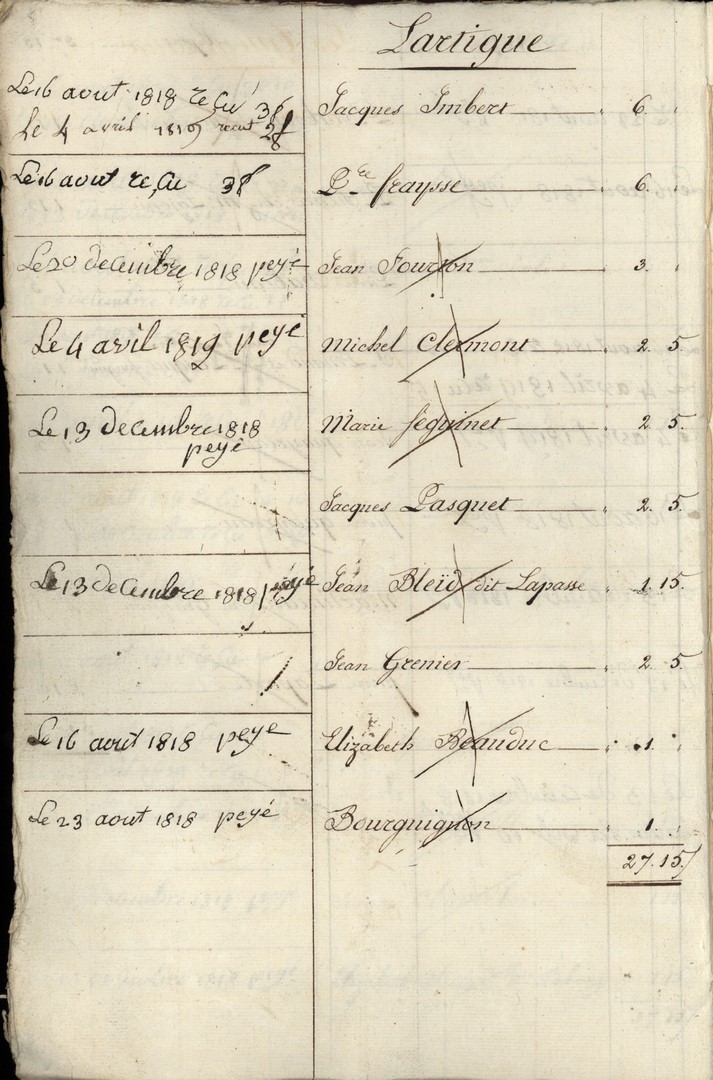 Lartigue
Le 16 aout 1818 reçu 3f
Le 4 avril 1819 recut 2f
Jacques Imbert 6.
Le 16 aout reçu 3f
P.re fraysse 6.
Le 20 decembre 1818 peyé
Jean 3.
Le 4 avril 1819 peyé
Michel Clermont 2. 5.
Le 13 Decembre 1818
peyé
Marie féguinet 2. 5.
Jacques Pasquet 2. 5.
Le 13 decembre 1818 peyé
Jean Bleïd dit Lapasse 1. 15.
Jean Grenier 2. 5.
Le 16 aout 1818 peye
Elizabeth Beauduc 1.
Le 23 aout 1818 peyé
Bourguignon 1.
27. 15.